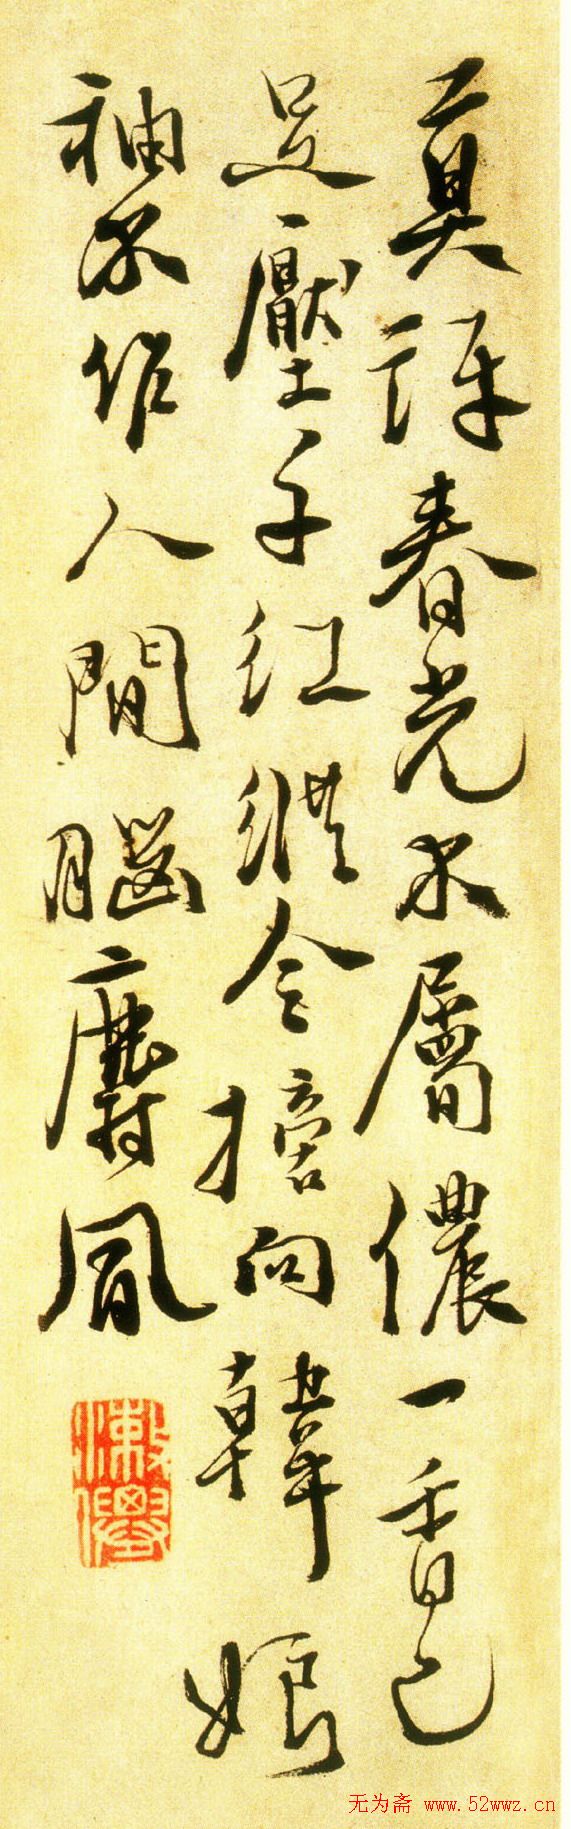 莫訝春光不屬儂一香已
足壓千紅總令搇向韓娘
袖不作人間腦麝風
无为斋 www.52wwz.cn